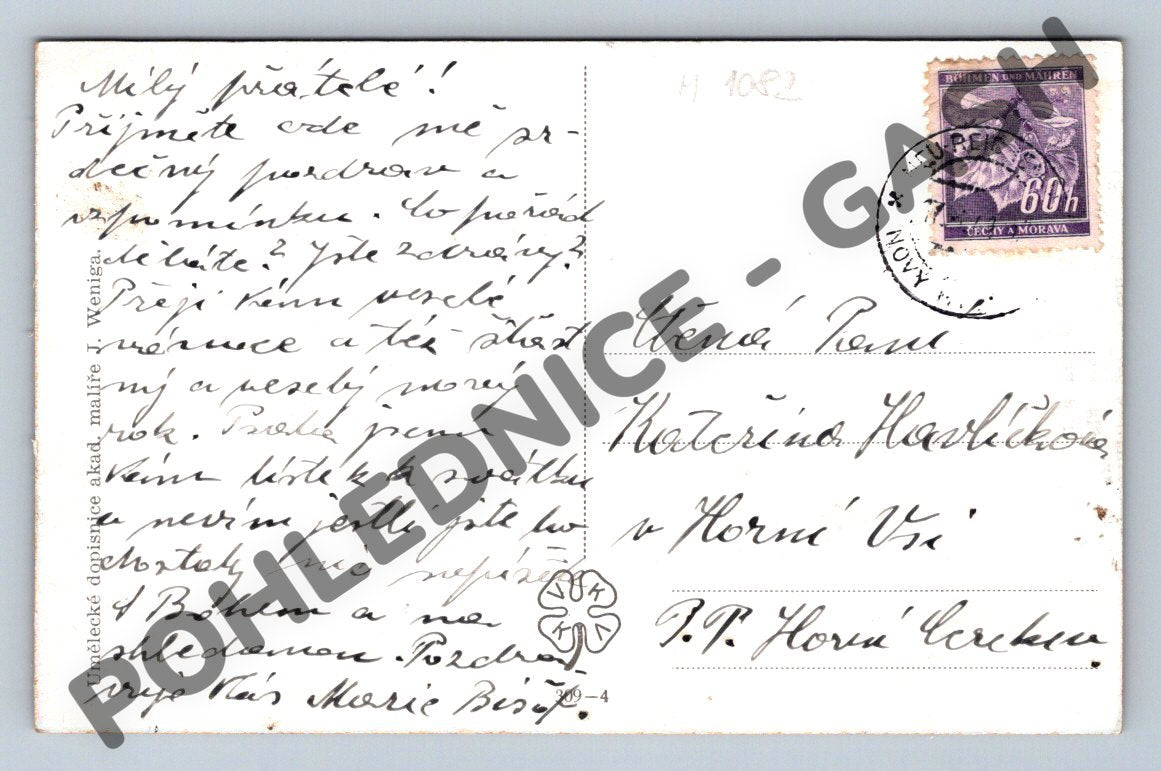 Milý přátelé!
Přijměte ode mě sr-
dečný pozdrav a
vzpomínku. Co pořád
děláte? Jste zdrávy?
Přeji Vám veselé
vánoce a též šťast
ný a veselý nový
rok. Psala jsem
Vám lístek k svátku
a nevím jestli jste ho
dostaly
S Bohem a na
shledanou. Pozdra-
vuje Vás Marie
Umělecké dopisnice akad. malíře J. Weniga.
309-4
V K K V
M 1082
BÖHMEN UND MÄHREN
60 h
ČECHY A MORAVA
NOVÝ
Ctěná Paní
Kateřina Havlíčková
v Horní Vsi
P.P. Horní Cerekev
POHLEDNICE - GASH